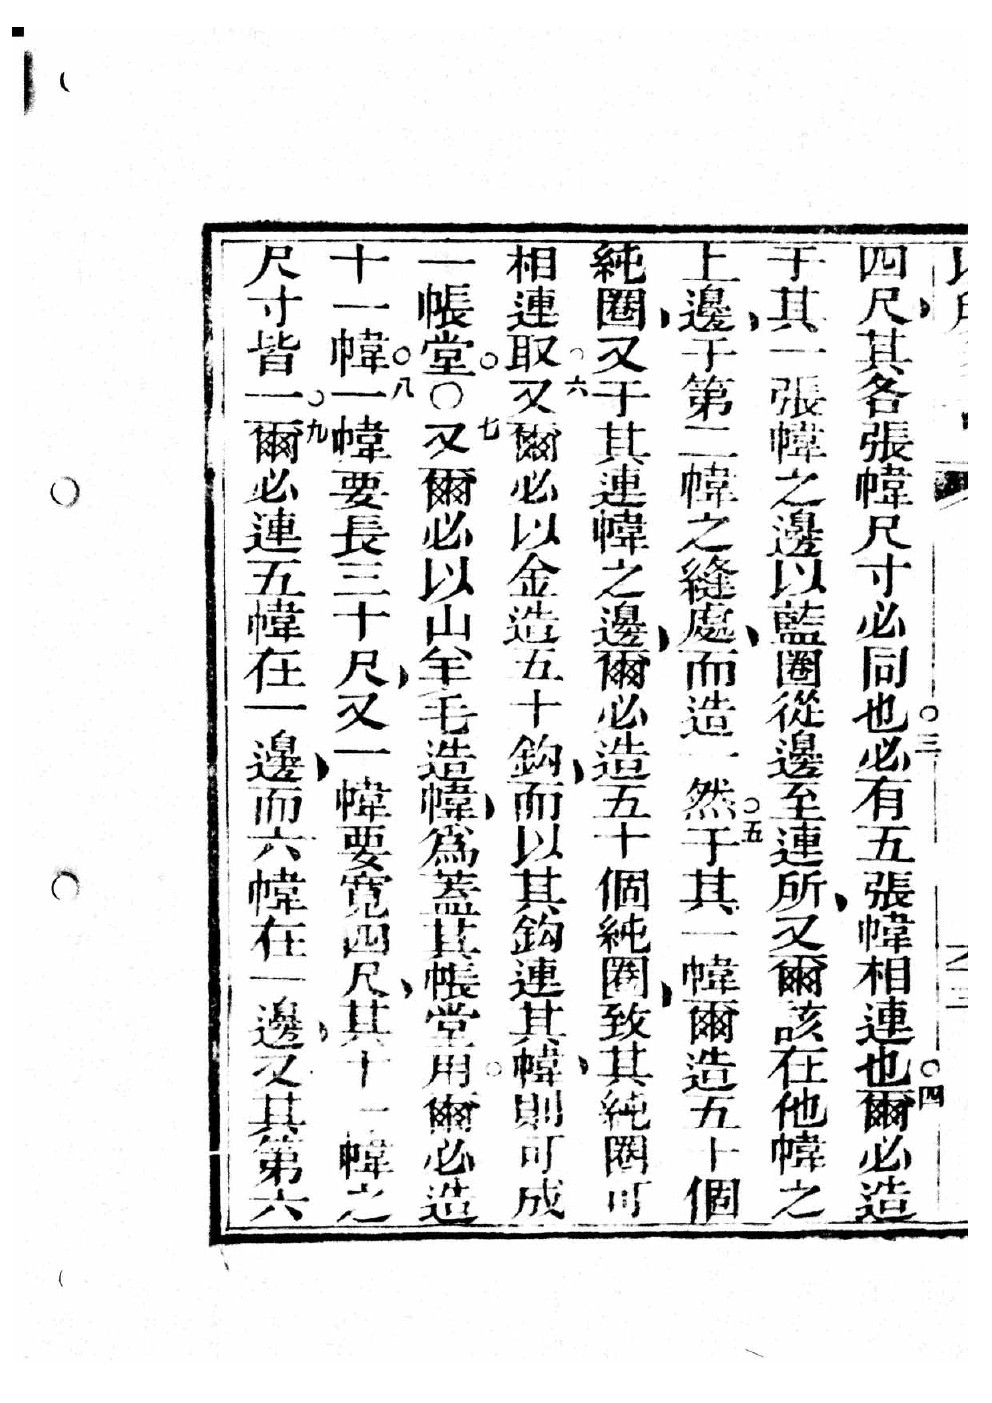 四尺其各張幃尺寸必同也○三必有五張幃相連也○四爾必造
于其一張幃之邊以藍圈從邊至連所又爾該在他幃之
上邊于第二幃之縫處而造一然○五于其一幃爾造五十個
純圈又于其連幃之邊爾必造五十個純圈致其純圈可
相連取○六又爾必以金造五十鈎而以其鈎連其幃則可成
一帳堂○七○又爾必以山羊毛造幃爲蓋其帳堂用○爾必造
十一幃○八一幃要長三十尺又一幃要寬四尺其十一幃之
尺寸皆一○九爾必連五幃在一邊而六幃在一邊又其第六